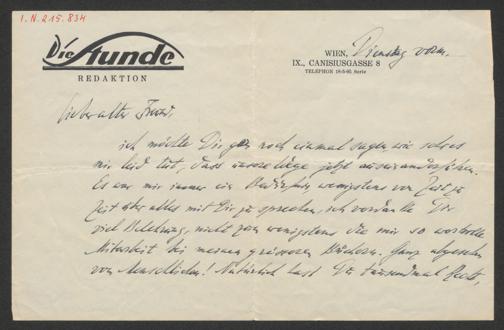 I.N. 215.834
Die Stunde
REDAKTION
WIEN, Dienstag vorm.
IX., CANISIUSGASSE 8
TELEPHON 18-5-95 Serie
Lieber alter Freund,
ich möchte Dir gern noch einmal sagen, wie sehr es
mir leid tut, dass unsere Wege jetzt auseinandergehen.
Es war mir immer ein Bedürfnis wenigstens von Zeit zu
Zeit über alles mit Dir zu sprechen, ich verdanke Dir
viel Belehrung, nicht zum wenigstens die mir so wertvolle
Mitarbeit bei meinen grösseren Büchern. Ganz abgesehen
vom Menschlichen! Natürlich hast Du tausendmal Recht,